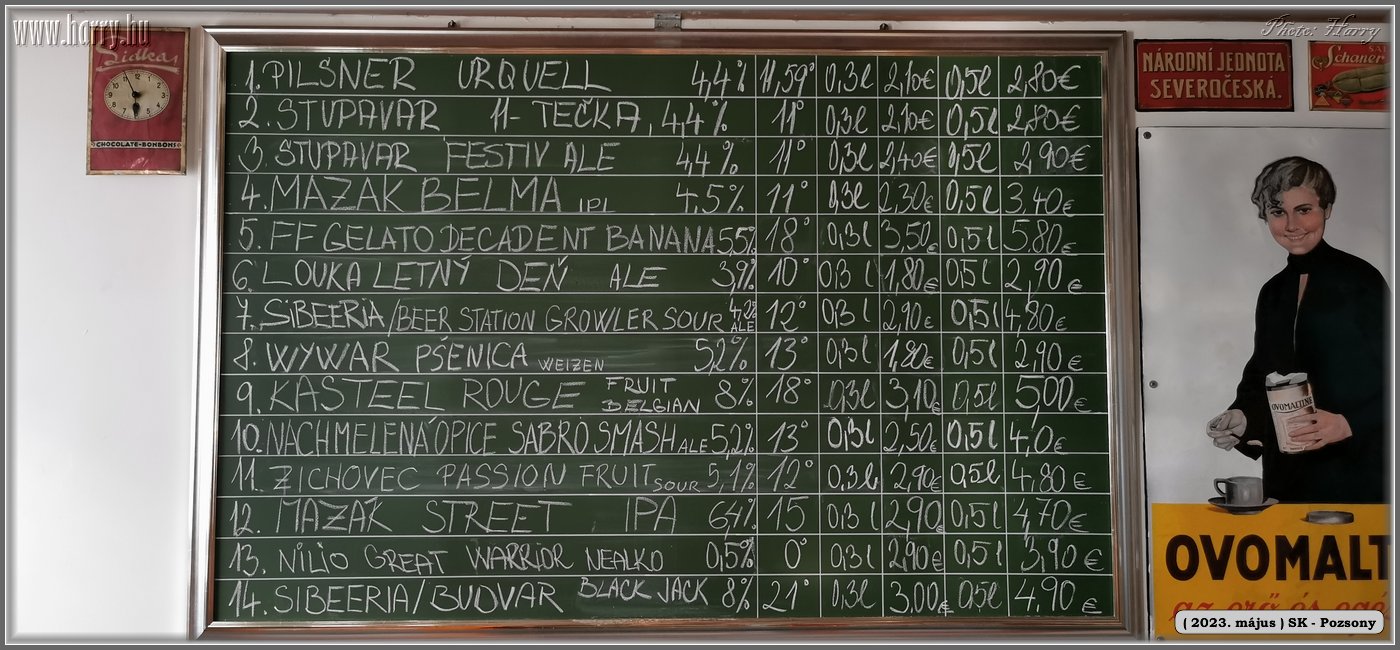 www.harry.hu
Photo: Harry
Sidka
CHOCOLATE-BONBONS
1. PILSNER URQUELL 4,4% 11,59° 0,3l 2,10€ 0,5l 2,80€
2. STUPAVAR 11-TEČKA, 4,4% 11° 0,3l 2,10€ 0,5l 2,80€
3. STUPAVAR FESTIV ALE 4,4% 11° 0,3l 2,40€ 0,5l 2,90€
4. MAZÁK BELMA IPL 4,5% 11° 0,3l 2,30€ 0,5l 3,40€
5. FF GELATO DECADENT BANANA 5,5% 18° 0,3l 3,50€ 0,5l 5,80€
6. LOUKA LETNÝ DEŇ ALE 3,9% 10° 0,3l 1,80€ 0,5l 2,90€
7. SIBEERIA/BEER STATION GROWLER SOUR ALE 4,2% 12° 0,3l 2,90€ 0,5l 4,80€
8. WYWAR PŠENICA WEIZEN 5,2% 13° 0,3l 1,80€ 0,5l 2,90€
9. KASTEEL ROUGE FRUIT BELGIAN 8% 18° 0,3l 3,10€ 0,5l 5,00€
10. NACHMELENÁ OPICE SABRO SMASH ALE 5,2% 13° 0,3l 2,50€ 0,5l 4,0€
11. ZICHOVEC PASSION FRUIT SOUR 5,1% 12° 0,3l 2,90€ 0,5l 4,80€
12. MAZÁK STREET IPA 6,4% 15 0,3l 2,90€ 0,5l 4,70€
13. NILIO GREAT WARRIOR NEALKO 0,5% 0° 0,3l 2,90€ 0,5l 3,90€
14. SIBEERIA/BUDVAR BLACK JACK 8% 21° 0,3l 3,00€ 0,5l 4,90€
NÁRODNÍ JEDNOTA
SEVEROČESKÁ.
Schaner
OVOMALTINE
OVOMALT
az erő és egé
( 2023. május ) SK - Pozsony